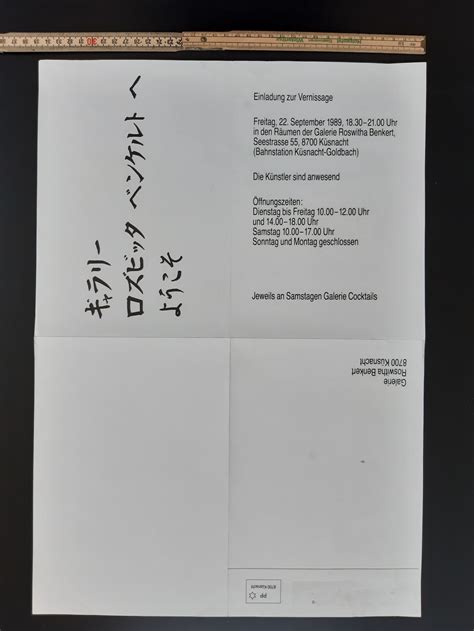 ギャラリー
ロズビッタ ベンケルト へ
ようこそ
Einladung zur Vernissage
Freitag, 22. September 1989, 18.30–21.00 Uhr
in den Räumen der Galerie Roswitha Benkert,
Seestrasse 55, 8700 Küsnacht
(Bahnstation Küsnacht-Goldbach)
Die Künstler sind anwesend
Öffnungszeiten:
Dienstag bis Freitag 10.00–12.00 Uhr
und 14.00–18.00 Uhr
Samstag 10.00–17.00 Uhr
Sonntag und Montag geschlossen
Jeweils an Samstagen Galerie Cocktails
Galerie
Roswitha Benkert
8700 Küsnacht
PP
8700 Küsnacht